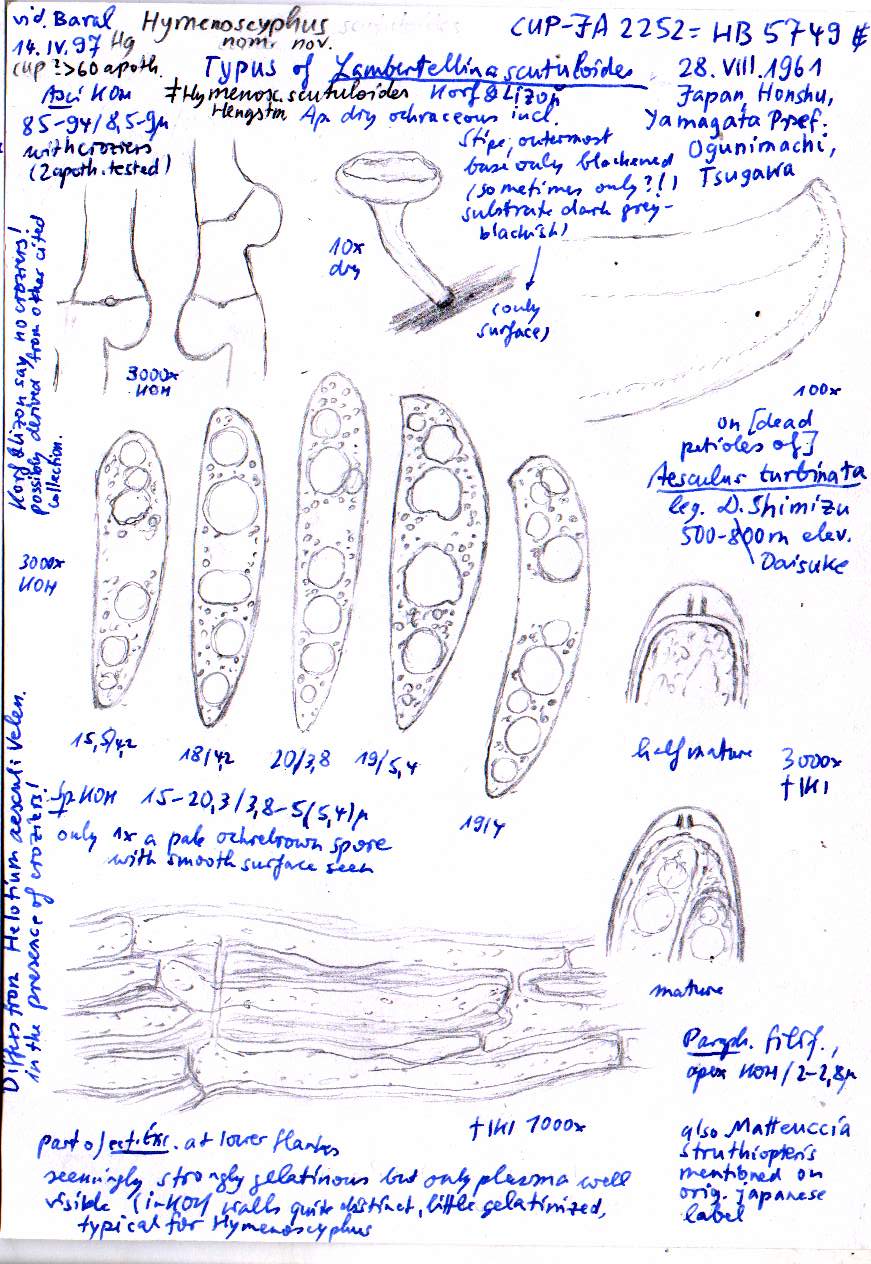 vid. Baral
14. IV. 97 Hg
Hymenoscyphus scutuloides
nom. nov.
CUP-JA 2252 = HB 5749
cup ? >60 apoth.
Typus of Lambertellina scutuloides
28. VIII. 1961
Asci KOH
≠ Hymenosc. scutuloides Korf & Lizoň
Hengstm Ap dry ochraceous incl.
85-94/8,5-9µ
with croziers
(2 apoth. tested)
Japan, Honshu,
Yamagata Pref.
Ogunimachi,
Tsugawa
Stipe, outermost
base only blackened
(sometimes only?!)
substrate dark grey-
blackish)
(only
surface)
10x
dry
3000x
KOH
100x
Korf & Lizon say no croziers!
possibly derived from other cited
collection.
on [dead
petioles of]
Aesculus turbinata
leg. D. Shimizu
500-800m elev.
Daisuke
3000x
KOH
15,5/4,2
18/4,2
20/3,8
19/5,4
19/4
half mature
3000x
+ IKI
Sp KOH 15-20,3/3,8-5(5,4)µ
only 1x a pale ochrebrown spore
with smooth surface seen
Differs from Helotium aesculi Velen.
in the presence of croziers!
mature
Paraph. filif.,
apex KOH / 2-2,8µ
+ IKI 1000x
part of ect. Exc. at lower flanks
seemingly strongly gelatinous but only plasma well
visible (in KOH) walls quite distinct, little gelatinized,
typical for Hymenoscyphus
also Matteuccia
struthiopteris
mentioned on
orig. japanese
label